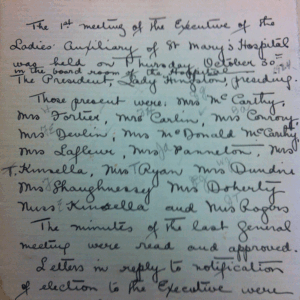 The 1st meeting of the Executive of the
Ladies Auxiliary of St Mary's Hospital
was held on Thursday, October 30th
in the board room of the Hospital
The President, Lady Hingston, presiding.
Those present were; Mrs McCarthy,
Mrs Fortier, Mrs Carlin, Mrs Conroy
Mrs Devlin, Mrs McDonald McCarthy,
Mrs Lafleur, Mrs Panneton, Mrs
T. Kinsella, Mrs Ryan Mrs Dundin
Mrs Shaughnessey Mrs Doherty
Miss Kinsella and Miss Rogers
The minutes of the last General
meeting were read and approved.
Letters in reply to notification
of election to the Executive were